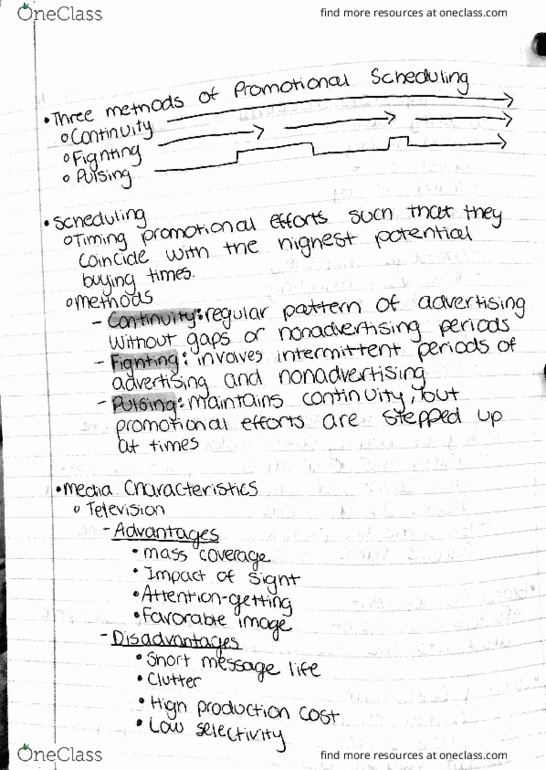 OneClass find more resources at oneclass.com
• Three methods of Promotional Scheduling
o Continuity
o Fighting
o Pulsing
• Scheduling
o Timing promotional efforts such that they
coincide with the highest potential
buying times.
o methods
- Continuity: regular pattern of advertising
without gaps or nonadvertising periods
- Fighting: involves intermittent periods of
advertising and nonadvertising
- Pulsing: maintains continuity, but
promotional efforts are stepped up
at times
• Media Characteristics
o Television
- Advantages
• mass coverage
• Impact of sight
• Attention-getting
• Favorable image
- Disadvantages
• Short message life
• Clutter
• High production cost
• Low selectivity
OneClass find more resources at oneclass.com